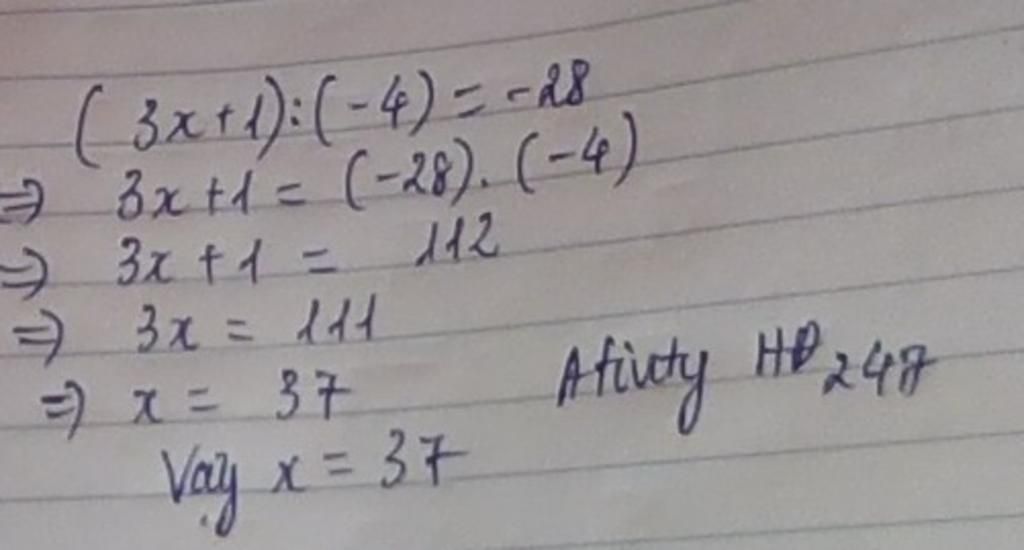 (3x+1):(-4)=-28
=> 3x+1 = (-28).(-4)
=> 3x+1 = 112
=> 3x = 111
=> x = 37
Vậy x = 37
Afivty HD 247